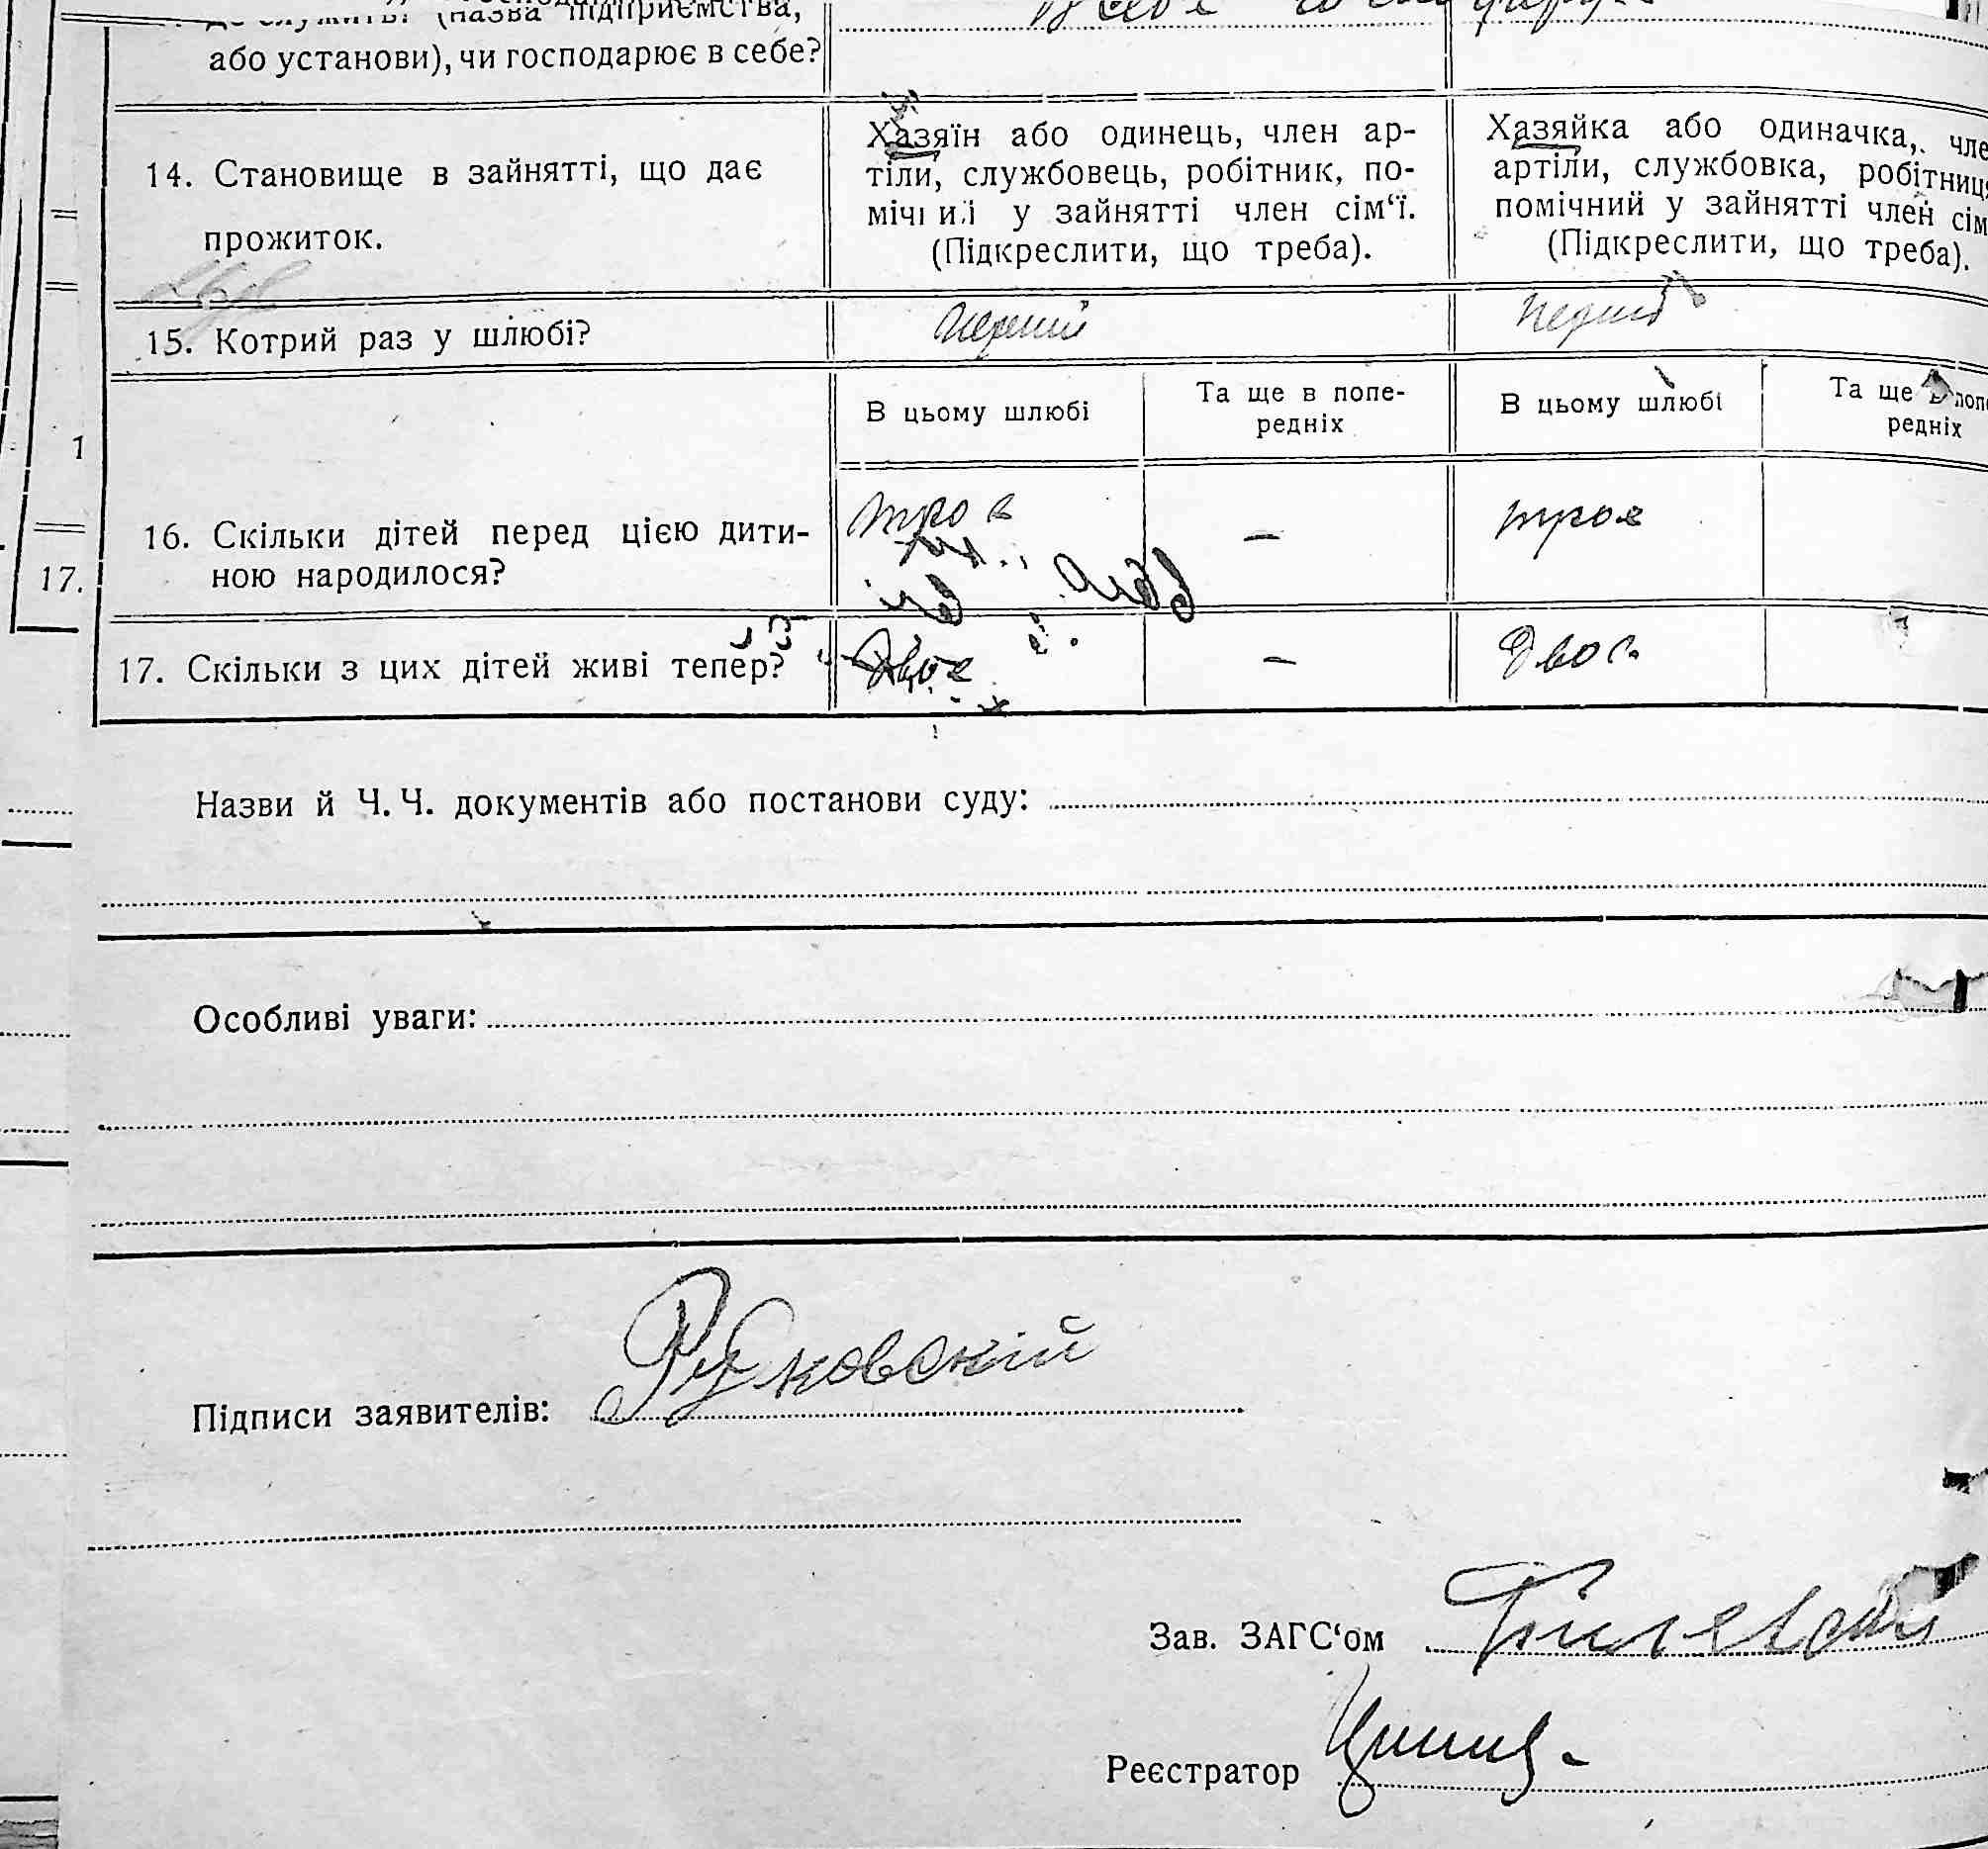 де служить? (назва підприємства,
або установи), чи господарює в себе?
14. Становище в зайнятті, що дає
прожиток.
Хазяїн або одинець, член ар-
тіли, службовець, робітник, по-
мічний у зайнятті член сім‘ї.
(Підкреслити, що треба).
Хазяйка або одиначка, чле
артіли, службовка, робітниця
помічний у зайнятті член сім
(Підкреслити, що треба).
15. Котрий раз у шлюбі?
перший
перший
В цьому шлюбі
Та ще в попе-
редніх
В цьому шлюбі
Та ще в попе
редніх
1
16. Скільки дітей перед цією дити-
ною народилося?
троє
–
троє
17.
17. Скільки з цих дітей живі тепер?
Двоє
–
Двоє
Назви й Ч. Ч. документів або постанови суду:
Особливі уваги:
Підписи заявителів:
Зав. ЗАГС‘ом
Реєстратор